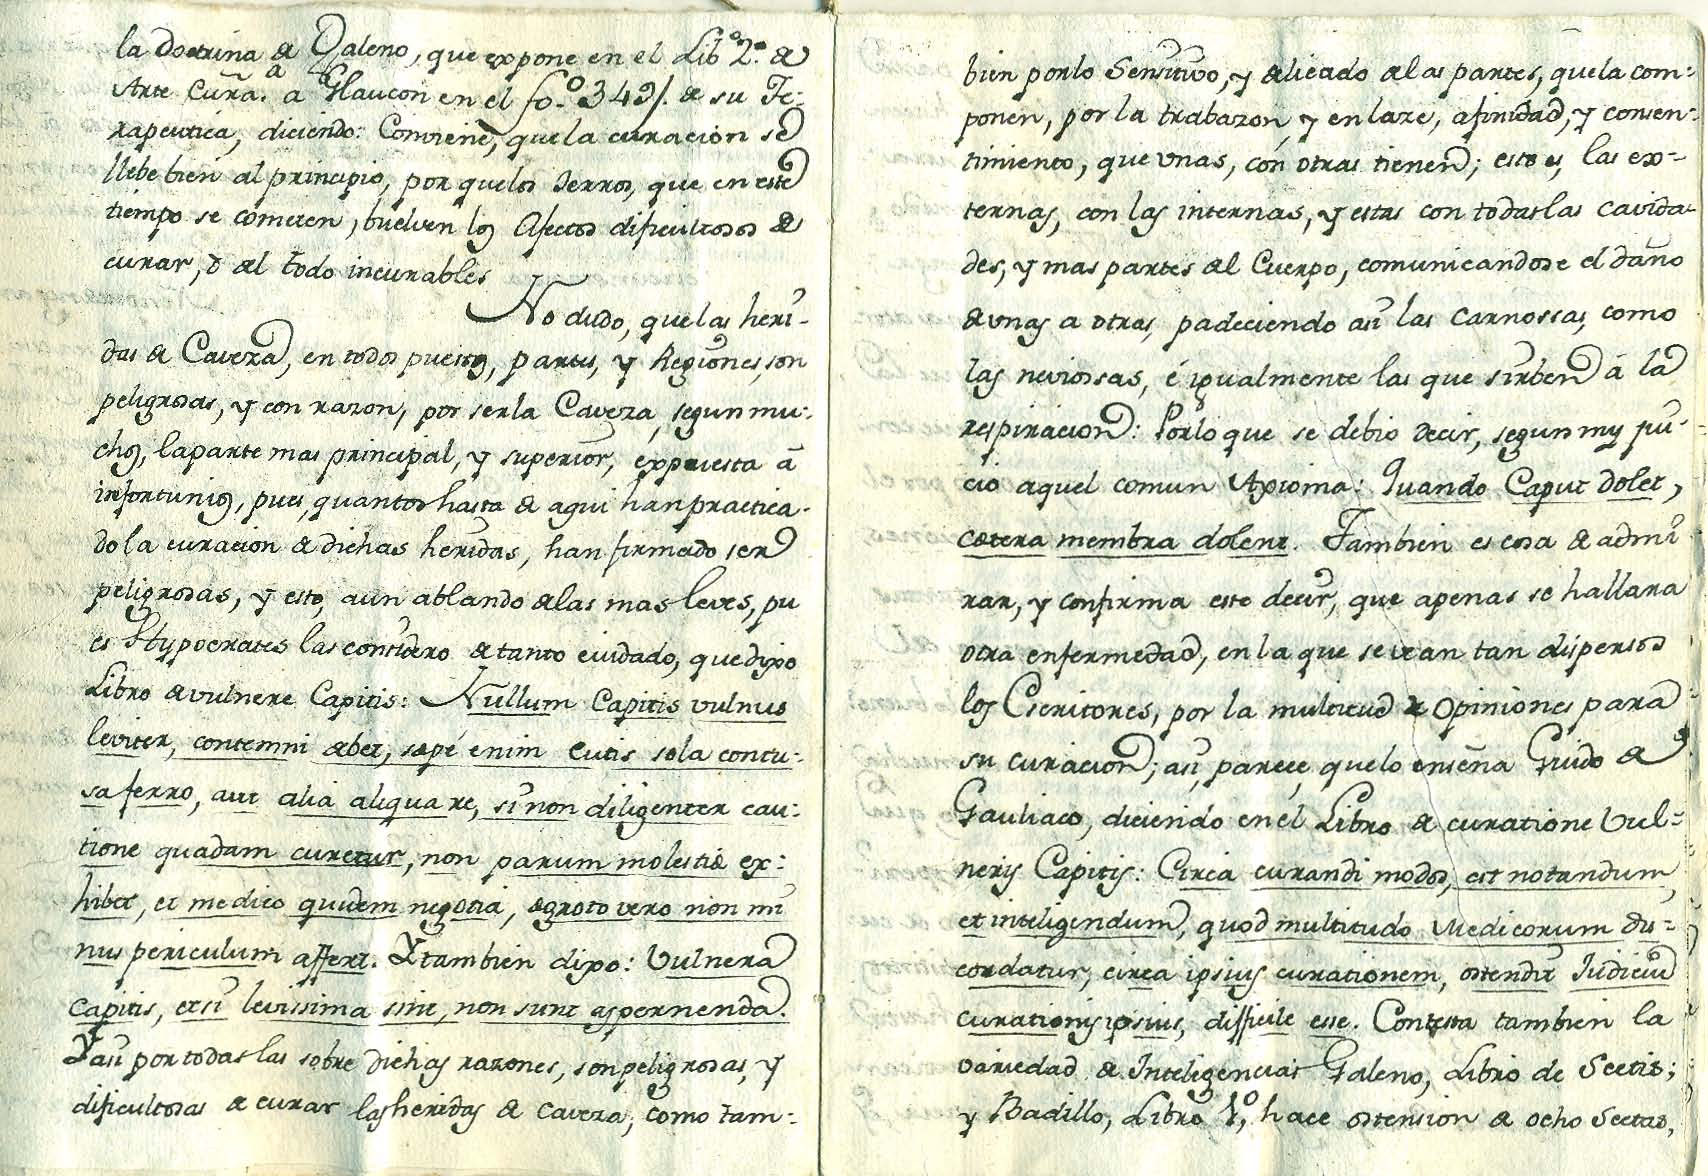 la Doctrina de Galeno, que expone en el Lib.º 2.º de
Arte Cura.ª a Glaucon en el fo.º 349/. de su Te-
rapeutica, diciendo: Conviene, que la curacion se
llebe bien al principio, por que los Ierros, que en este
tiempo se cometen, buelven los Afectos dificultosos de
curar, ò del todo incurables
No dudo, que las heri-
das de Caveza, en todos puestos, partes, y Regiones, son
peligrosas, y con razon, por ser la Caveza, segun mu-
chos, la parte mas principal, y superior, expuesta à
infortunios, pues, quantos hasta de aqui han practica-
do la curacion de dichas heridas, han firmado ser
peligrosas, y esto, aun ablando de las mas leves, pu
es Hypocrates las considero de tanto cuidado, que dixo
Libro de vulnere Capitis: Nullum Capitis vulnus
leviter, contemni debet, sæpé enim cutis sola contu-
sa ferro, aut alia aliqua re, si non diligenter cau-
tione quadam curetur, non parum molestiæ ex-
hibet, et medico quidem negotia, ægroto vero non mi
nus periculum affert. Y tambien dixo: Vulnera
capitis, etsi levissima sint, non sunt aspernenda.
Y asi por todas las sobre dichas razones, son peligrosas, y
dificultosas de curar las heridas de caveza, como tam-
bien por lo Sensitivo, y delicado de las partes, que la com-
ponen, por la trabazon, y enlaze, afinidad, y consen-
timiento, que unas, con otras tienen; esto es, las ex-
ternas, con las internas, y estas con todas las cavida-
des, y mas partes del Cuerpo, comunicandose el daño
de unas a otras, padeciendo asi las carnossas, como
las neviossas, é igualmente las que sirben à la
respiracion: Por lo que se debio decir, segun my jui-
cio aquel comun Axioma: Quando Caput dolet,
cætera membra dolent. Tambien es cosa de admi
rar, y confirma este decir, que apenas se hallara
otra enfermedad, en la que se vean tan dispersos
los Escritores, por la multitud de Opiniones para
su curacion; asi parece, que lo enseña Guido de
Gauliaco, diciendo en el Libro de curatione Vul-
neris Capitis: Circa curandi modos, est notandum,
et inteligendum, quod multitudo Medicorum dis-
cordatur, circa ipsius curationem, ostendit Iudiciũ
curationis ipsius, difficile esse. Contesta tambien la
variedad de Inteligencias Galeno, Libro de Sectis;
y Badillo, Libro 1.º, hace ostension de ocho Sectas,